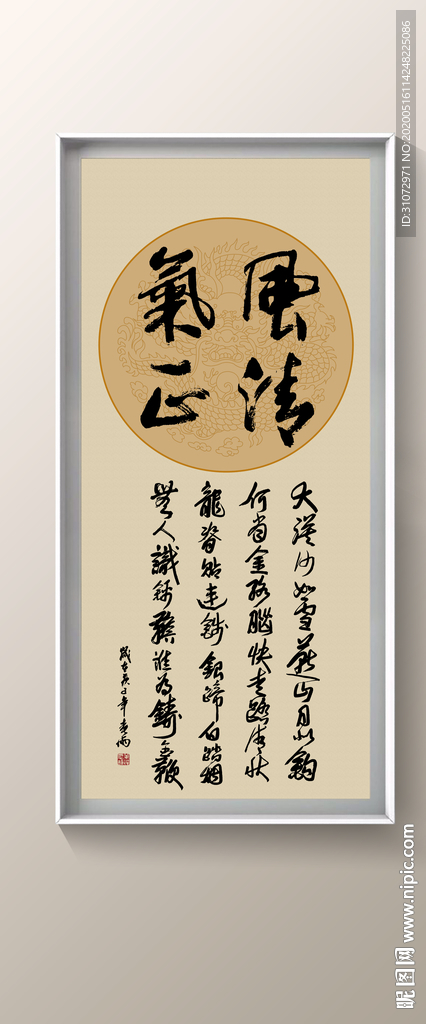 風清
氣正
大漠沙如雪燕山月似鉤
何當金絡腦快走踏清秋
龍脊貼連錢銀蹄白踏煙
無人織錦韂誰為鑄金鞭
歲在庚子年
ID:31072971 NO:20200516114248225086
昵图网 www.nipic.com